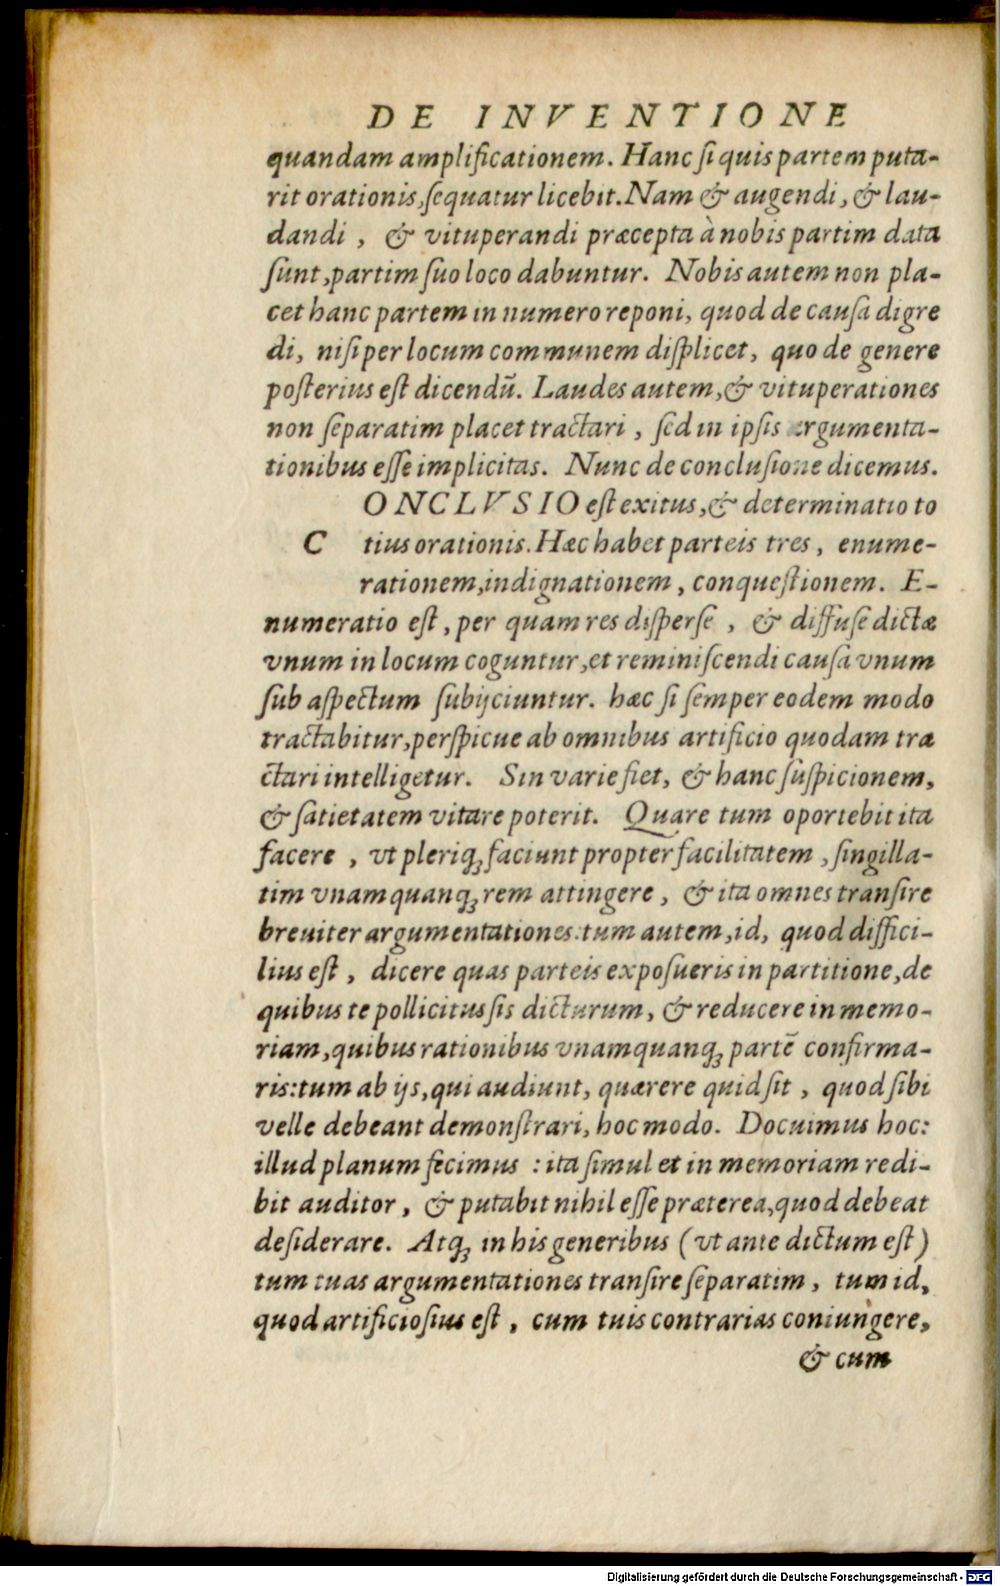 DE INVENTIONE
quandam amplificationem. Hanc si quis partem puta-
rit orationis, sequatur licebit. Nam & augendi, & lau-
dandi, & vituperandi præcepta à nobis partim data
sunt, partim suo loco dabuntur. Nobis autem non pla-
cet hanc partem in numero reponi, quod de causa digre
di, nisi per locum communem displicet, quo de genere
posterius est dicendū. Laudes autem, & vituperationes
non separatim placet tractari, sed in ipsis argumenta-
tionibus esse implicitas. Nunc de conclusione dicemus.
ONCLVSIO est exitus, & determinatio to
C tius orationis. Hæc habet parteis tres, enume-
rationem, indignationem, conquestionem. E-
numeratio est, per quam res disperse, & diffuse dictæ
vnum in locum coguntur, et reminiscendi causa vnum
sub aspectum subijciuntur. hæc si semper eodem modo
tractabitur, perspicue ab omnibus artificio quodam tra
ctari intelligetur. Sin varie fiet, & hanc suspicionem,
& satietatem vitare poterit. Quare tum oportebit ita
facere, vt pleriqꝫ faciunt propter facilitatem, singilla-
tim vnamquanqꝫ rem attingere, & ita omnes transire
breuiter argumentationes: tum autem, id, quod diffici-
lius est, dicere quas parteis exposueris in partitione, de
quibus te pollicitus sis dicturum, & reducere in memo-
riam, quibus rationibus vnamquanqꝫ partē confirma-
ris: tum ab ijs, qui audiunt, quærere quid sit, quod sibi
velle debeant demonstrari, hoc modo. Docuimus hoc:
illud planum fecimus : ita simul et in memoriam redi-
bit auditor, & putabit nihil esse præterea, quod debeat
desiderare. Atqꝫ in his generibus (vt ante dictum est)
tum tuas argumentationes transire separatim, tum id,
quod artificiosius est, cum tuis contrarias coniungere,
& cum
Digitalisierung gefördert durch die Deutsche Forschungsgemeinschaft - DFG